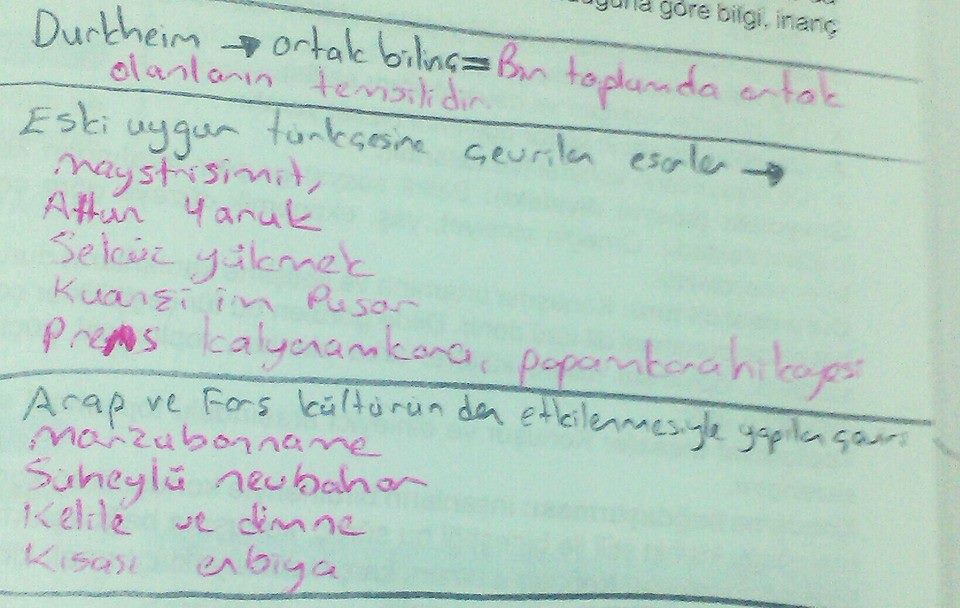 göre bilgi, inanç
Durkheim → ortak bilinç = Bir toplumda ortak
olanların temsilidir.
Eski uygur türkçesine çevrilen eserler →
Maystrisimit,
Altun Yaruk
Sekiz yükmek
Kuanşi im Pusar
Prens kalyanamkara, papamkara hikayesi
Arap ve Fars kültüründen etkilenmesiyle yapılan çeviri
Marzubanname
Süheylü nevbahar
Kelile ve dimne
Kısası enbiya